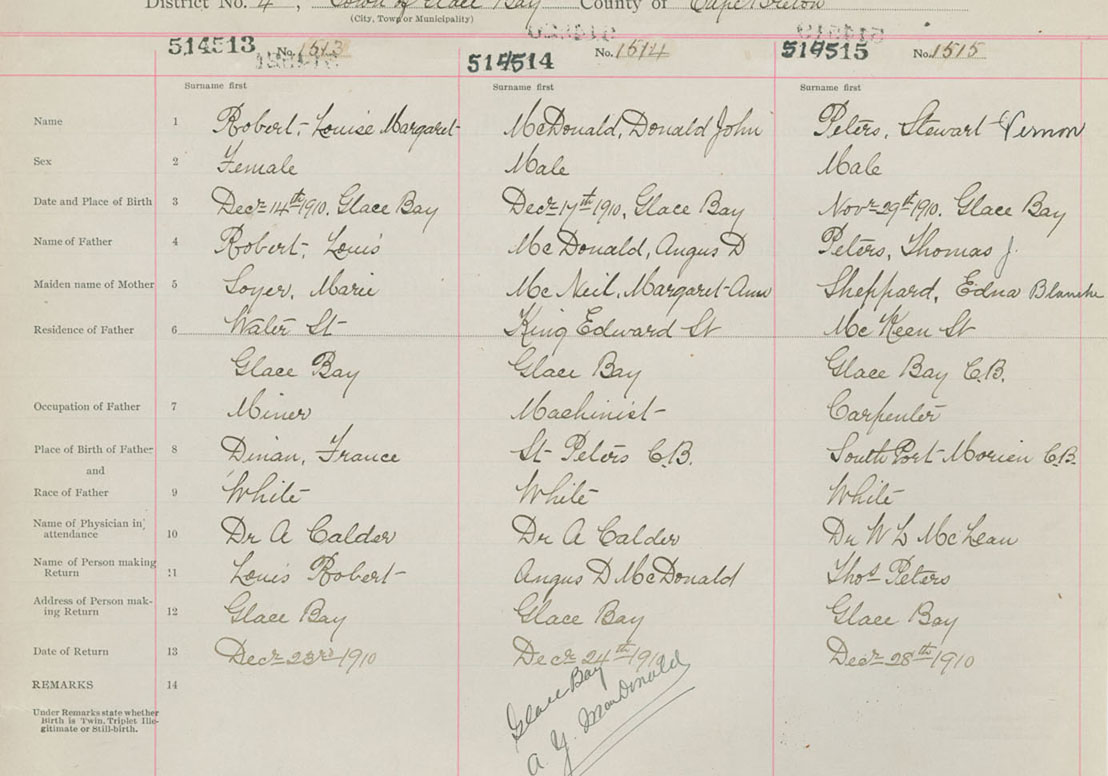 District No. 4, Town of Glace Bay County of Cape Breton
(City, Town or Municipality)
514513 No. 1513 514514 No. 1514 514515 No. 1515
Surname first Surname first Surname first
Name 1 Robert, Louise Margaret McDonald, Donald John Peters, Stewart Vernon
Sex 2 Female Male Male
Date and Place of Birth 3 Decr 14th 1910. Glace Bay Decr 17th 1910, Glace Bay Novr 29th 1910. Glace Bay
Name of Father 4 Robert, Louis McDonald, Angus D Peters, Thomas J.
Maiden name of Mother 5 Soyer, Marie McNeil, Margaret Ann Sheppard, Edna Blanche
Residence of Father 6 Water St King Edward St McKeen St
Glace Bay Glace Bay Glace Bay C.B.
Occupation of Father 7 Miner Machinist Carpenter
Place of Birth of Father 8 Dinan, France St Peters C.B. South Port Morien C.B.
and
Race of Father 9 White White White
Name of Physician in
attendance 10 Dr A Calder Dr A Calder Dr W L McLean
Name of Person making
Return 11 Louis Robert Angus D McDonald Thos Peters
Address of Person mak-
ing Return 12 Glace Bay Glace Bay Glace Bay
Date of Return 13 Decr 23rd 1910 Decr 24th 1910 Decr 28th 1910
REMARKS 14
Glace Bay
A. Y. MacDonald
Under Remarks state whether
Birth is Twin, Triplet Ille-
gitimate or Still-birth.